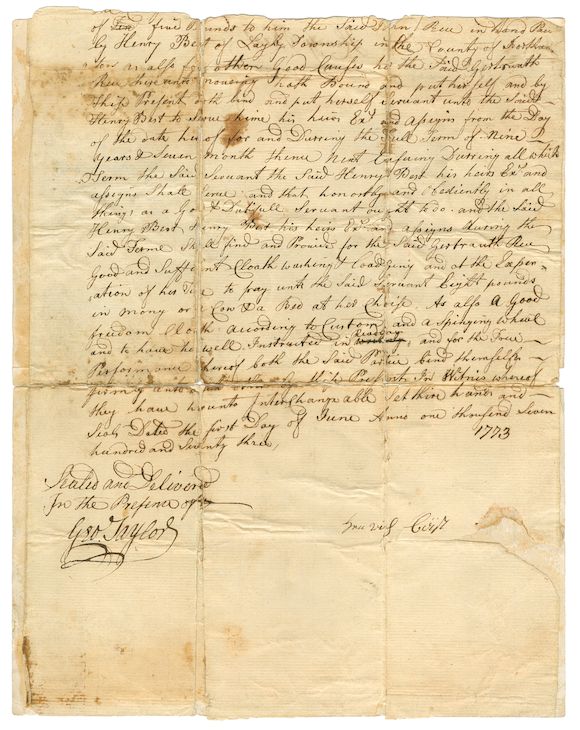 of Ten five Pounds to him the Said John Rue in hand Paid
by Henry Best of Township in the County of
also for other Good Causes he the Said Gertrauth
Rue hath Bound and put herself and by
this Present doth bind and put herself Servant unto the Said
Henry Best to Serve hime his heirs Exr and assigns from the Day
of the date hereof for and Durring the Full Term of Nine
Years & Seven Month thence Next Ensuing Durring all which
Term the Said Servant the Said Henry Best his heirs Exr and
assigns Shall Serve and that honorbly and Obediently in all
things as a Good & Dutifull Servant ought to do and the Said
Henry Best, Henry Best his heirs Exr and assigns during the
Said Terme Shall find and Provide for the Said Gertrauth Rue
Good and Sufficent Cloath washing & Loadging and at the Exper-
ation of her Time to pay unto the Said Servant Eight pounds
in mony or a Cow & a Bed at her Choise. As also A Good
freedom Cloath according to Custom and a Spinging wheel
and to have he well Instructed in Reading and for the True
Performance thereof both the Said Partie bind themselfs
firmly unto Each other by These Present In Witnis whereof
they have hereunto Interchangable Set thire hands and
Seals Dated the first Day of June Anno one thousend Seven
hundred and Seventy three, 1773
Sealed and Delivered
In the Presence of
Geo Taylor